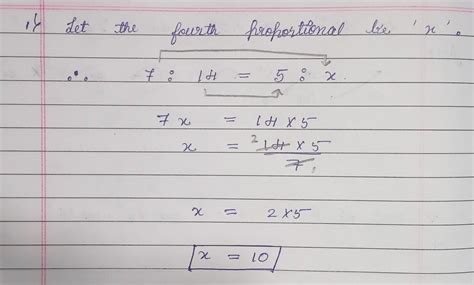 1) Let the fourth proportional be 'x'.
∴ 7 : 14 = 5 : x
7x = 14 × 5
x = 2 14 × 5
7 1
x = 2 × 5
x = 10